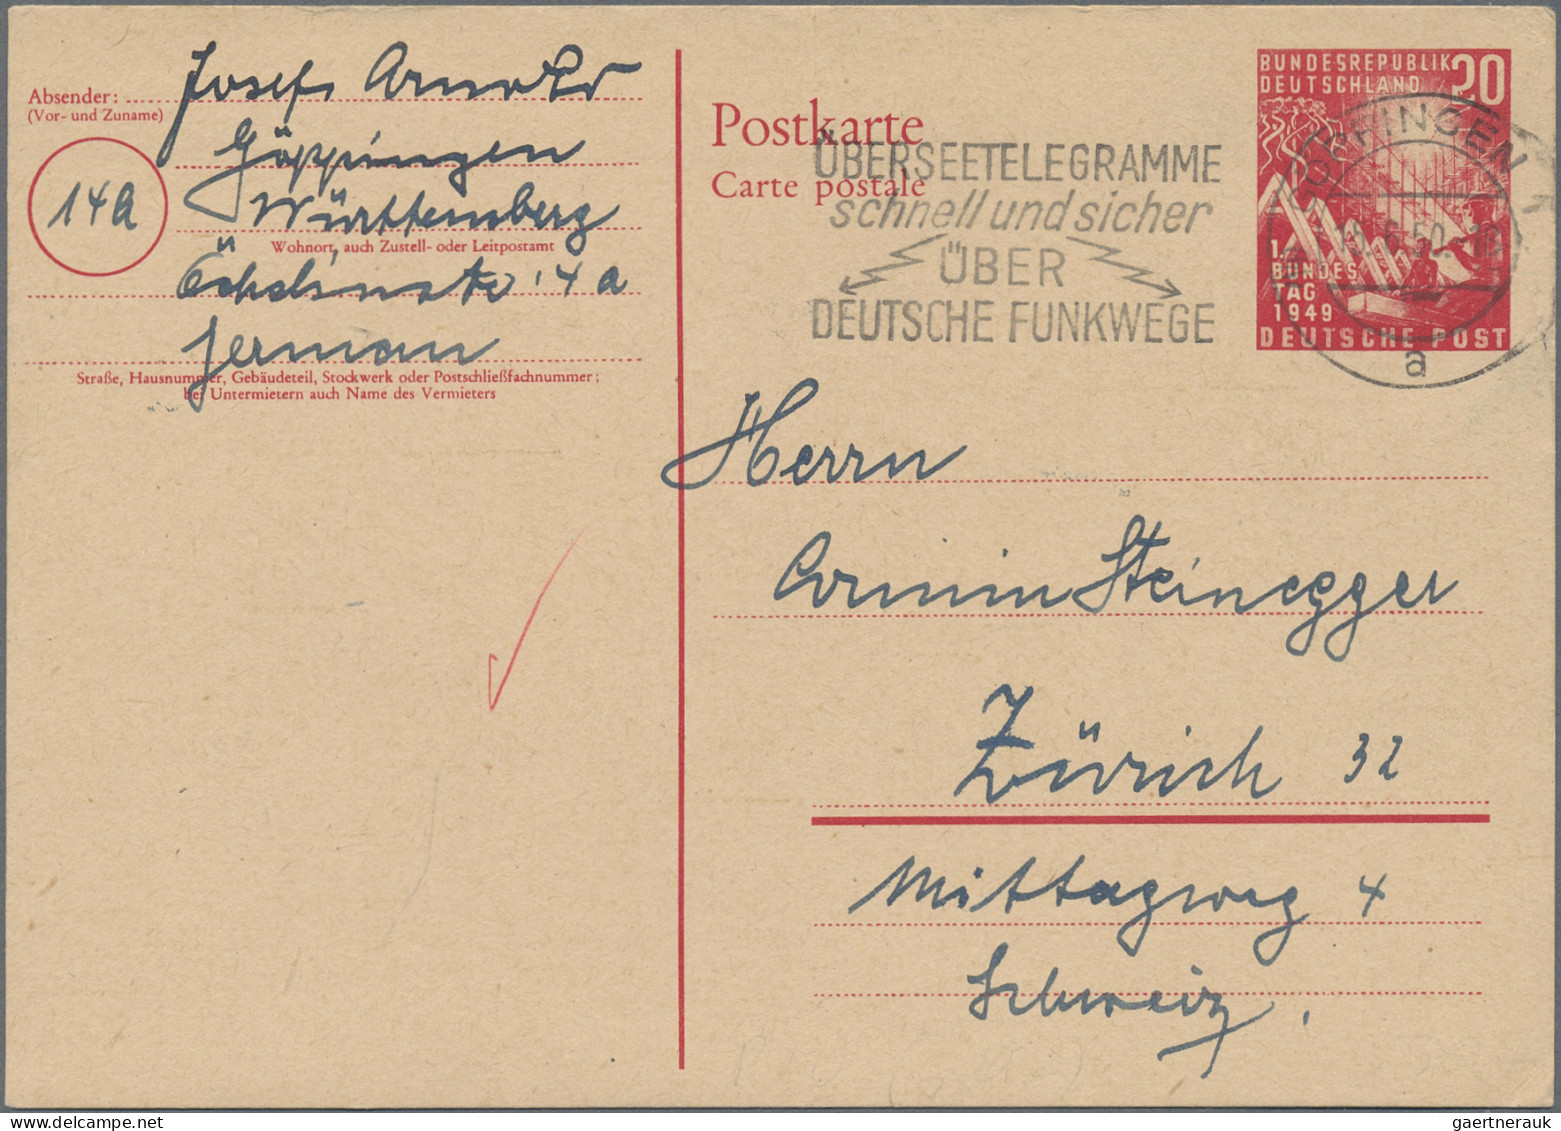 Absender:
(Vor- und Zuname)
Josef Arnold
Göppingen
14a
Württemberg
Wohnort, auch Zustell- oder Leitpostamt
14 a
German
Straße, Hausnummer, Gebäudeteil, Stockwerk oder Postschließfachnummer;
bei Untermietern auch Name des Vermieters
Postkarte
Carte postale
ÜBERSEETELEGRAMME
schnell und sicher
ÜBER
DEUTSCHE FUNKWEGE
BUNDESREPUBLIK
DEUTSCHLAND
20
1.
BUNDES
TAG
1949
DEUTSCHE POST
GÖPPINGEN
a
Herrn
Armin Steinegger
Zürich 32
Mittagweg 4
Schweiz.
gaertnerauk